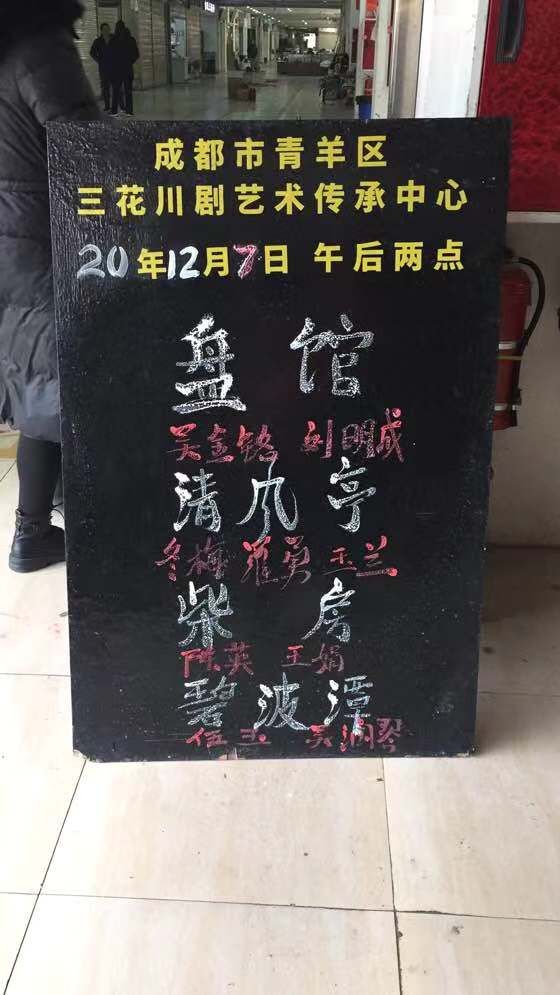 成都市青羊区
三花川剧艺术传承中心
20年12月7日 午后两点
盘 馆
吴金铭 刘明成
清风亭
冬梅 崔勇 玉兰
柴 房
陈英 王娟
碧波潭
伍玉 吴润琴